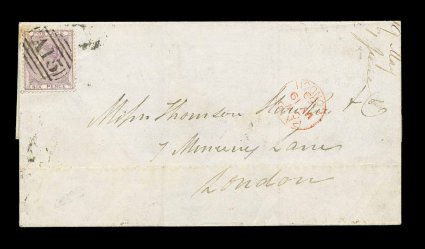 A15
SIX PENCE
LONDON
Messrs Thomson Hankey & Co
7 Mincing Lane
London